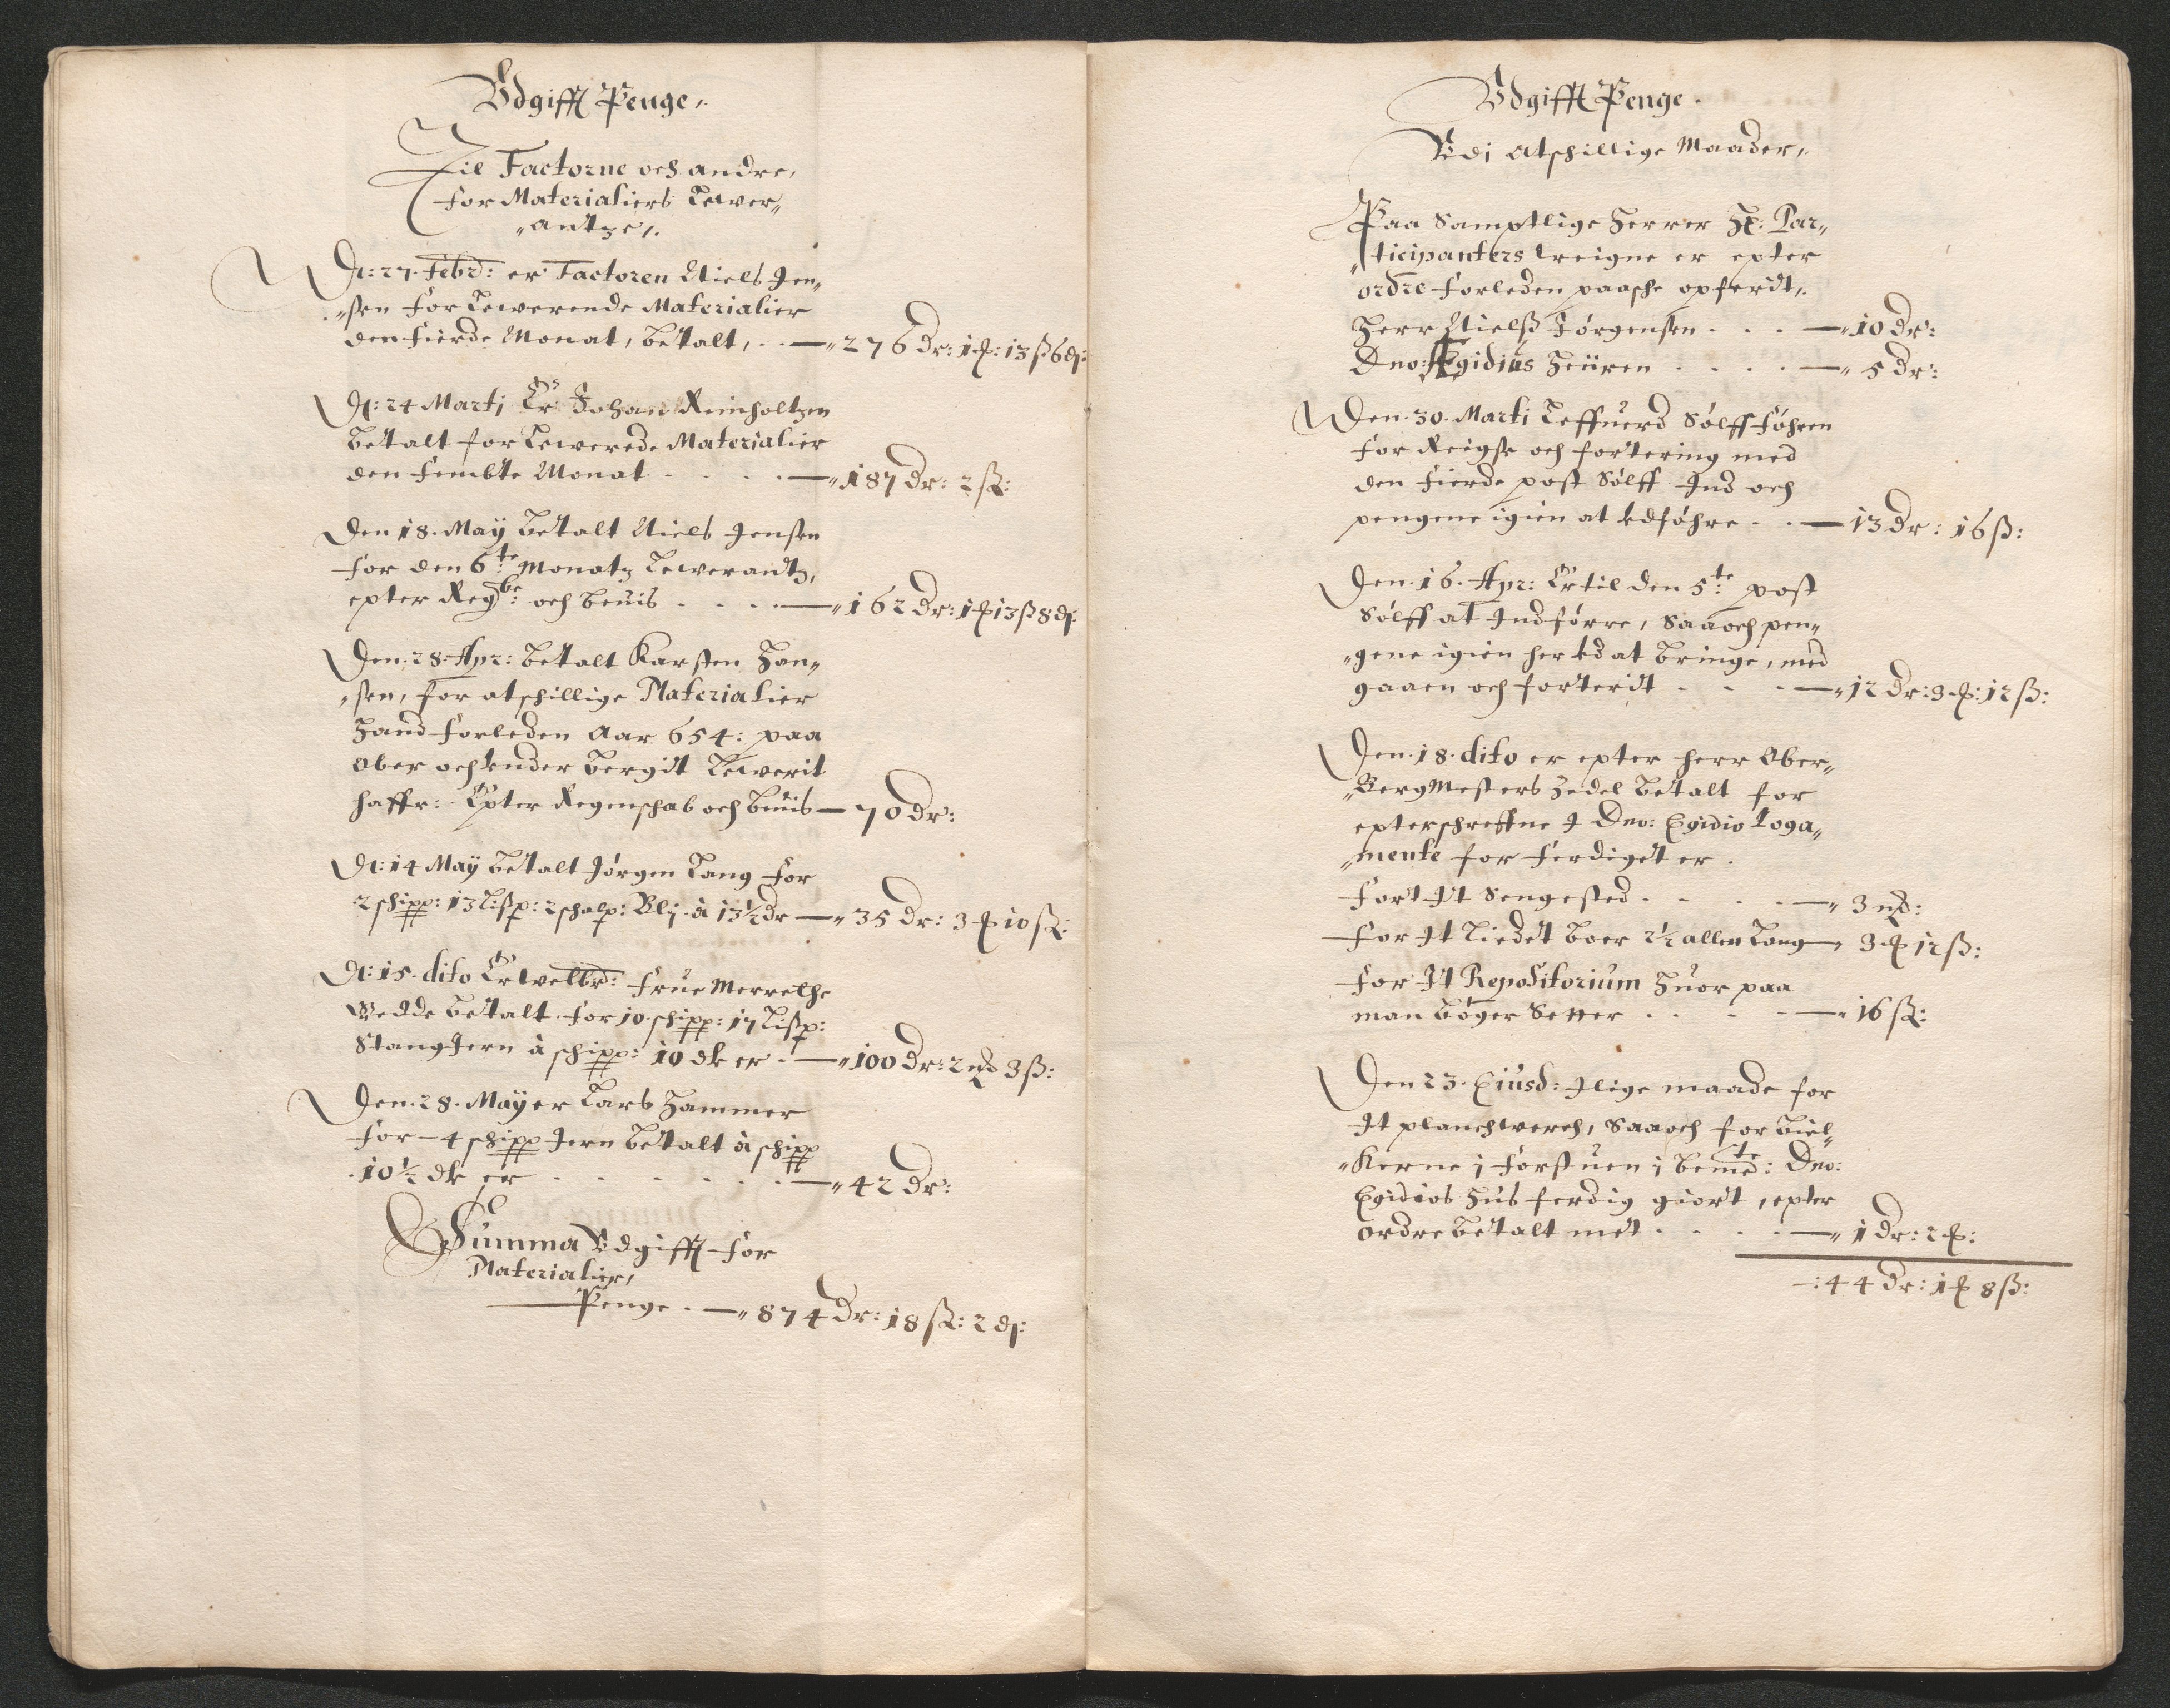 Vdgifft Penge,
Til Factorne och andre,
for Materialiers Lewer,,
,,antze,
D: 27. Febr: er Factoren Niels Jen,,
,,sen for Lewerende Materialier
den fierde Monat, betalt, . . — ,, 276 dr: 1 ȹ: 13 ß 6 ₰:
D: 24 Martj Er Johan Reinholtzen
betalt for Lewerede Materialier
den fembte Monat . . . . — ,, 187 dr: 2 ß:
Den 18. Maÿ betalt Niels Jensen
for den 6te: Monatz Lewerantz,
epter Regbe: och beuis . . . . — ,, 162 dr: 1 ȹ 13 ß 8 ₰:
Den 28. Apr: betalt Karsten Han,,
,,sen, for atschillige Materialier
Hand forleden Aar 654: paa
Ober och vnder berget Lewerit
haffr: Epter Regenschab och beuis — 70 dr:
D: 14 Maÿ betalt Jørgen Lang for
2 schipp: 13 Lißp: 2 schalp: Blj. à 13½ dr — ,, 35 dr: 3 ȹ 10 ß:
D: 15. dito Er welbr: Frue Merrethe
betalt for 10. schipp: 17 Lißp:
Stang Jern à schipp: 10 dlr er . — ,, 100 dr: 2 ȹ 3 ß:
Den 28. Maÿ er Lars Hammer
for 4 schipp Jern betalt à schipp
10½ dlr er . . . . . . — ,, 42 dr:
Summa Vdgifft for
Materialier,
Penge . — ,, 874 dr: 18 ß: 2 ₰:
Vdgifft Penge.
Vdj Atschillige Maader,
Paa Samptlige Herrer Hr: Par,,
,,ticipanters weigne er epter
ordre forleden paasche opferit,
Herr Nielß Jørgensen . . . — ,, 10 dr:
Dno: Ægidius . . . . — ,, 5 dr:
Den 30. Marti Leffuerd Sølff føhren
for Reigse och fortering med
den fierde post Sølff Ind och
pengene igien at vdføhre . . — 13 dr: 16 ß:
Den 16. Apr: Er til den 5te: post
Sølff at Indførre, Saa och pen,,
,,gene igien her vd at bringe, med
gaaen och forterit . . . — ,, 12 dr: 3 ȹ: 12 ß:
Den 18. dito er epter herr Ober,,
,,BergMesters Zedel betalt for
epterschreffne J Dno: Egidio Loga,,
,,mente for ferdiget er.
For It Sengested . . . . — ,, 3 ȹ:
For It Lidet boer 2½ allen Lang — ,, 3 ȹ 12 ß:
For It Repositorium Huor paa
man bøger Setter . . . . — ,, 16 ß:
Den 23. Eiusd: J lige maade for
It planchwerch, Saa och for biel,,
,,Kerne j forstuen j bemte: Dno:
Egidios Hus ferdig giort, epter
ordre betalt met . . . . — ,, 1 dr: 2 ȹ:
—: 44 dr: 1 ȹ 8 ß: